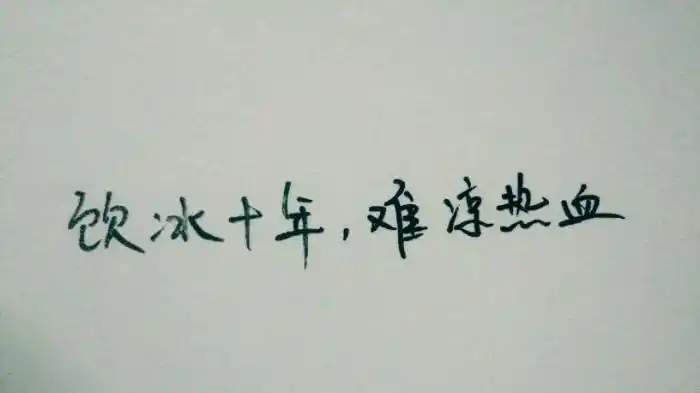 饮冰十年,难凉热血